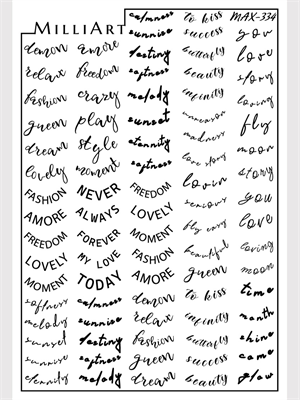 MILLIART
MAX-334
demon
relax
fashion
queen
dream
lovely
FASHION
AMORE
FREEDOM
LOVELY
MOMENT
softness
melody
sunrise
sunset
eternity
amore
freedom
crazy
play
style
moment
NEVER
ALWAYS
FOREVER
MY LOVE
TODAY
calmness
sunrise
destiny
softness
melody
calmness
sunrise
destiny
softness
melody
sunset
eternity
softness
FREEDOM
LOVELY
MOMENT
FASHION
AMORE
demon
relax
fashion
queen
dream
to kiss
success
butterfly
beauty
infinity
unreason
madness
love story
lovin
serious
fly easy
beautiful
queen
to kiss
infinity
butterfly
success
beauty
you
love
story
loving
fly
moon
story
you
love
loving
moon
time
month
shine
come
glow